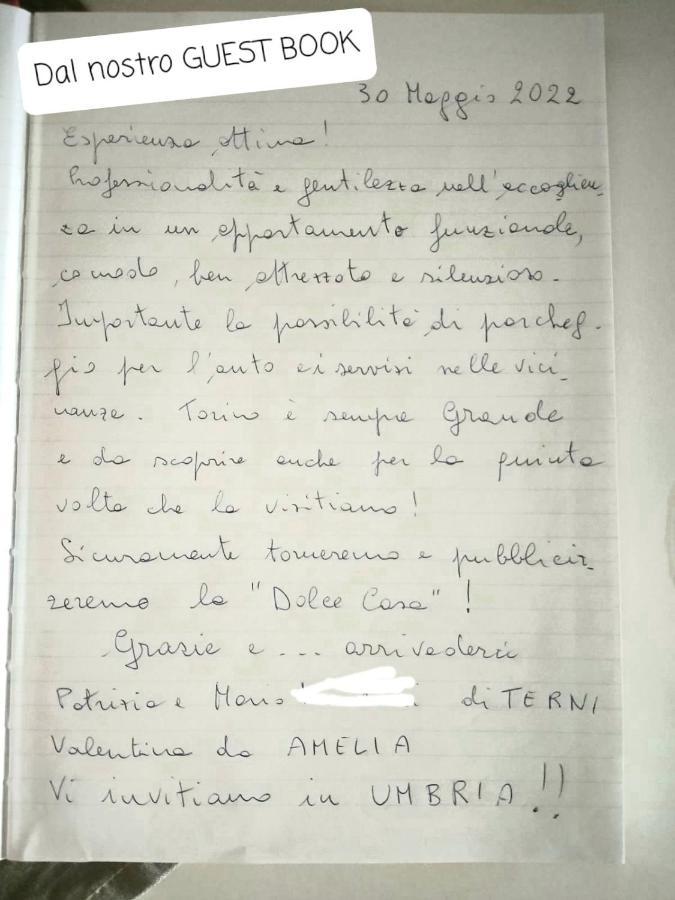 Dal nostro GUEST BOOK
30 Maggio 2022
Esperienza ottima!
Professionalità e gentilezza nell'accoglien_
za in un appartamento funzionale,
comodo, ben attrezzato e silenzioso.
Importante la possibilità di parcheg-
gio per l'auto e i servizi nelle vici_
nanze. Torino è sempre Grande
e da scoprire anche per la quinta
volta che la visitiamo!
Sicuramente torneremo e pubbliciz_
zeremo la "Dolce Casa"!
Grazie e ... arrivederci
Patrizia e Mario di TERNI
Valentina da AMELIA
Vi invitiamo in UMBRIA!!